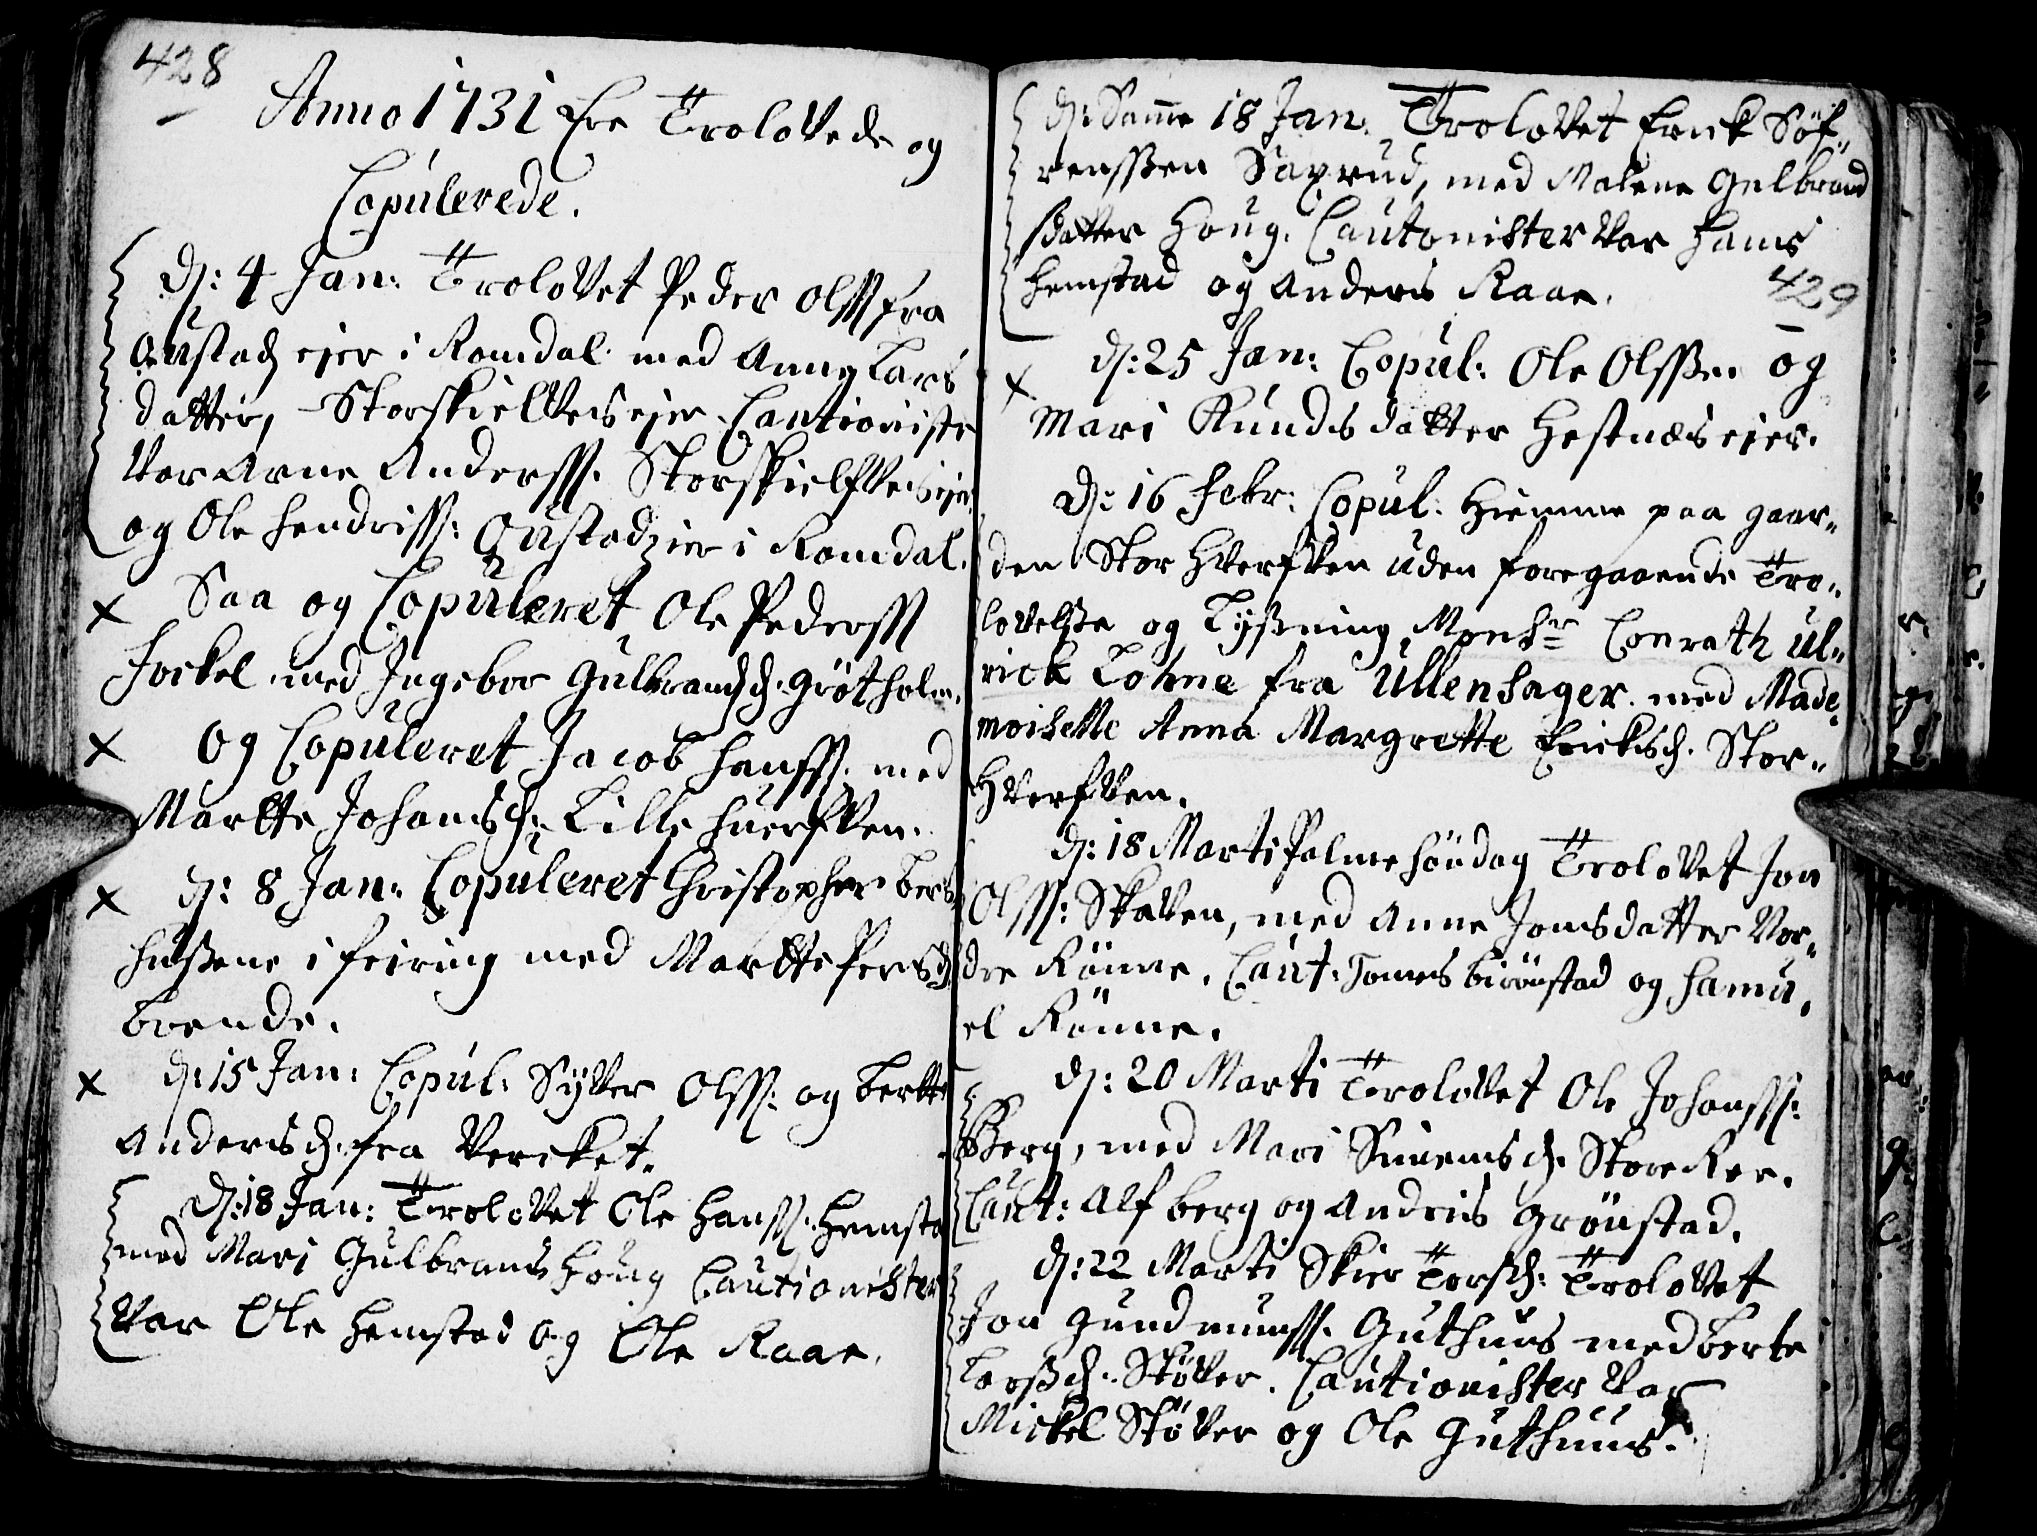 428
Anno 1731 Ere Trolovede og
Copulerede.
d: 4 Jan: Trolovet Peder Olss fra
Onstad ejer i Romdal med Anne Lars
datter, Storskielfvens ejer Cautioniste
var Arne Anderss. Storskielfvens ejer
og Ole Hendriss: Onstad ejer i Romdal.
x Saa og Copuleret Ole Pederss
Jockel med Ingebor Gulbrandsd. Grøtholm.
x Og Copuleret Jacob Hanss. med
Marthe Johansd: Lille Huerfven.
x d: 8 Jan: Copuleret Christopher Ber
hussene i Feiring med Marthe Persd.
brende.
x d: 15 Jan: Copul: Syver Olss: og Berthe
Andersd. fra Vercket.
d: 18 Jan: Trolovet Ole Hanss. Hemsta
med Mari Gulbrans Houg Cautionister
var Ole Hemstad og Ole Raae.
d: Samme 18 Jan: Trolovet Erick Søf„
renssen Saxrud, med Malene Gulbrand
sdatter Houg. Cautonister var Hans
Hemstad og Anders Raae.
429
x d: 25 Jan: Copul: Ole Olssen og
Mari Knuds datter Hestnæs ejer.
d: 16 Febr: Copul: Hiemme paa gaar„
den Stor Hverfven uden foregaaende Tro„
lovelsse og Lyssning Monsr Conrath Ul„
rick Lohne fra Ullensager med Made„
moiselle Anna Margrette Ericksd. Stor„
Hverfven.
d: 18 Marti Palmesøndag Trolovet Jon
Olss: Skaven, med Anne Jonsdatter Nor„
dre Rønne. Caut: Tomes biørnstad og Samu„
el Rønne.
d: 20 Marti Trolovet Ole Johanss:
Berg, med Mari Simensd. Store Ker.
Caut: Alf berg og Anders Grønstad.
d: 22 Marti Skier Torsd: Trolovet
Jon Gundmunss. Guthuus med Berte
Larssd. Støver. Cautionister var
Mickel Støver og Ole Guthuus.